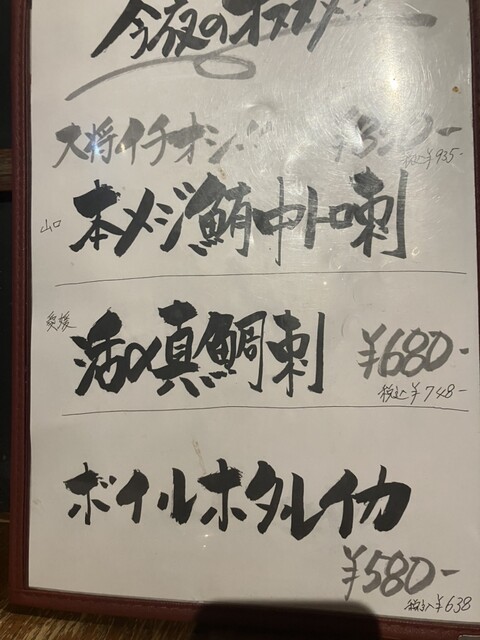 今夜のオススメ
大将イチオシ
¥850-
税込¥935-
山口
本メジ鮪中トロ刺
愛媛
活〆真鯛刺
¥680-
税込¥748-
ボイルホタルイカ
¥580-
税込¥638